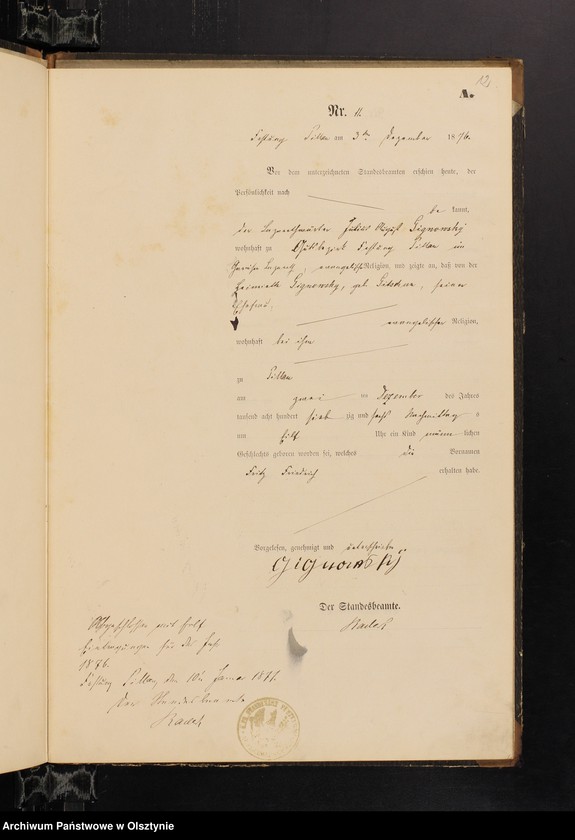 12
A.
Nr. 11.
Festung Pillau am 3ten Dezember 1876.
Vor dem unterzeichneten Standesbeamten erschien heute, der
Persönlichkeit nach
be kannt,
der Lazarethwärter Julius August Gignowsky
wohnhaft zu Gutsbezirk Festung Pillau im
Garnison Lazareth, evangelischer Religion, und zeigte an, daß von der
Henriette Gignowsky, geb. seiner
Ehefrau,
evangelischer Religion,
wohnhaft bei ihm
zu Pillau
am zwei ten Dezember des Jahres
tausend acht hundert sieb zig und sechs Nachmittags
um Uhr ein Kind männ lichen
Geschlechts geboren worden sei, welches die Vornamen
Fritz Friedrich
erhalten habe.
Vorgelesen, genehmigt und unterschrieben
Gignowsky
Der Standesbeamte.
Abgeschlossen mit elf
Eintragungen für das Jahr
1876.
Festung Pillau den 10ten Januar 1877.
Der Standesbeamte
Archiwum Państwowe w Olsztynie